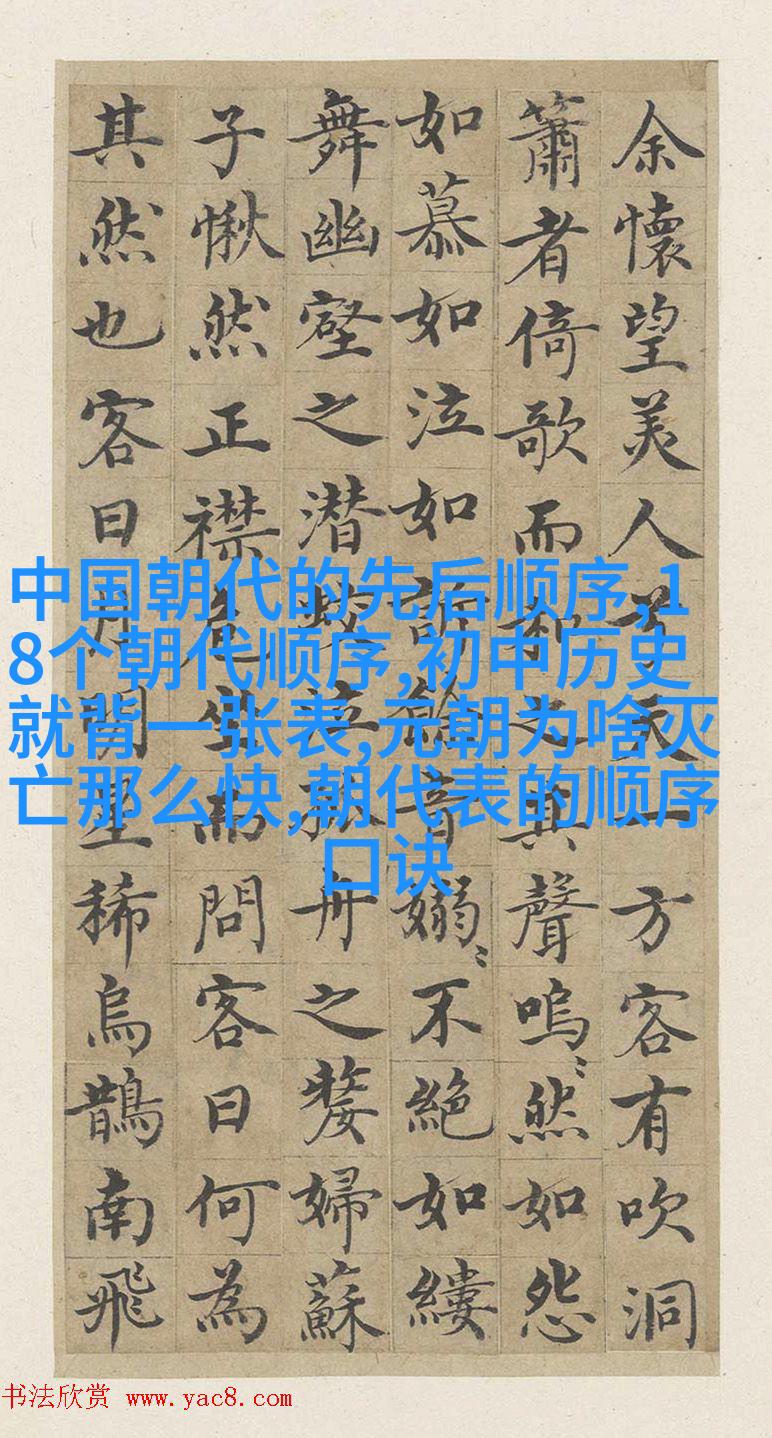 余懷望美人兮天一方客有吹洞
簫者倚歌而和之其聲嗚〻然如怨
如慕如泣如訴餘音嫋〻不絕如縷
舞幽壑之潜蛟泣孤舟之嫠婦蘇
子愀然正襟危坐而問客曰何為
其然也客曰月明星稀烏鵲南飛
中国朝代的先后顺序,1
8个朝代顺序,初中历史
就背一张表,元朝为啥灭
亡那么快,朝代表的顺序
口诀
书法欣赏 www.yac8.com